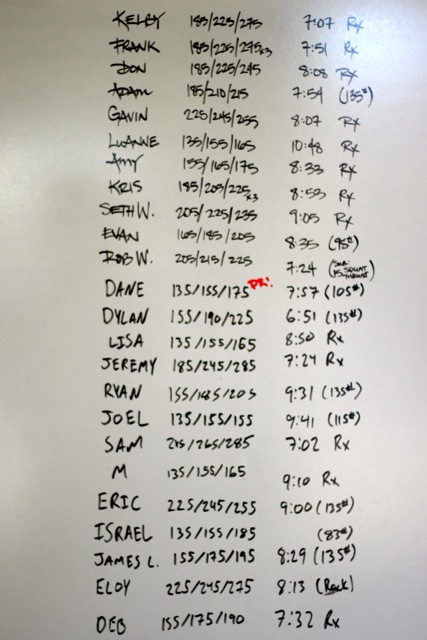 KELBY 185/225/275 7:07 Rx
FRANK 185/225/275x3 7:51 Rx
DON 185/225/245 8:08 Rx
ADAM 185/210/215 7:54 (135#)
GAVIN 225/245/255 8:07 Rx
LUANNE 135/155/165 10:48 Rx
AMY 155/165/175 8:33 Rx
KRIS 185/205/225x3 8:53 Rx
SETH W. 205/225/235 9:05 Rx
EVAN 165/185/205 8:35 (95#)
ROB W. 205/215/225 7:24 SQUAT
DANE 135/155/175 PR! 7:57 (105#)
DYLAN 155/190/225 6:51 (135#)
LISA 135/155/165 8:50 Rx
JEREMY 185/245/285 7:24 Rx
RYAN 155/185/205 9:31 (135#)
JOEL 135/155/155 9:41 (115#)
SAM 245/265/285 7:02 Rx
M 135/155/165 9:10 Rx
ERIC 225/245/255 9:00 (135#)
ISRAEL 135/155/185 (83#)
JAMES L. 155/175/195 8:29 (135#)
ELOY 225/245/275 8:13 (Rack)
DEB 155/175/190 7:32 Rx